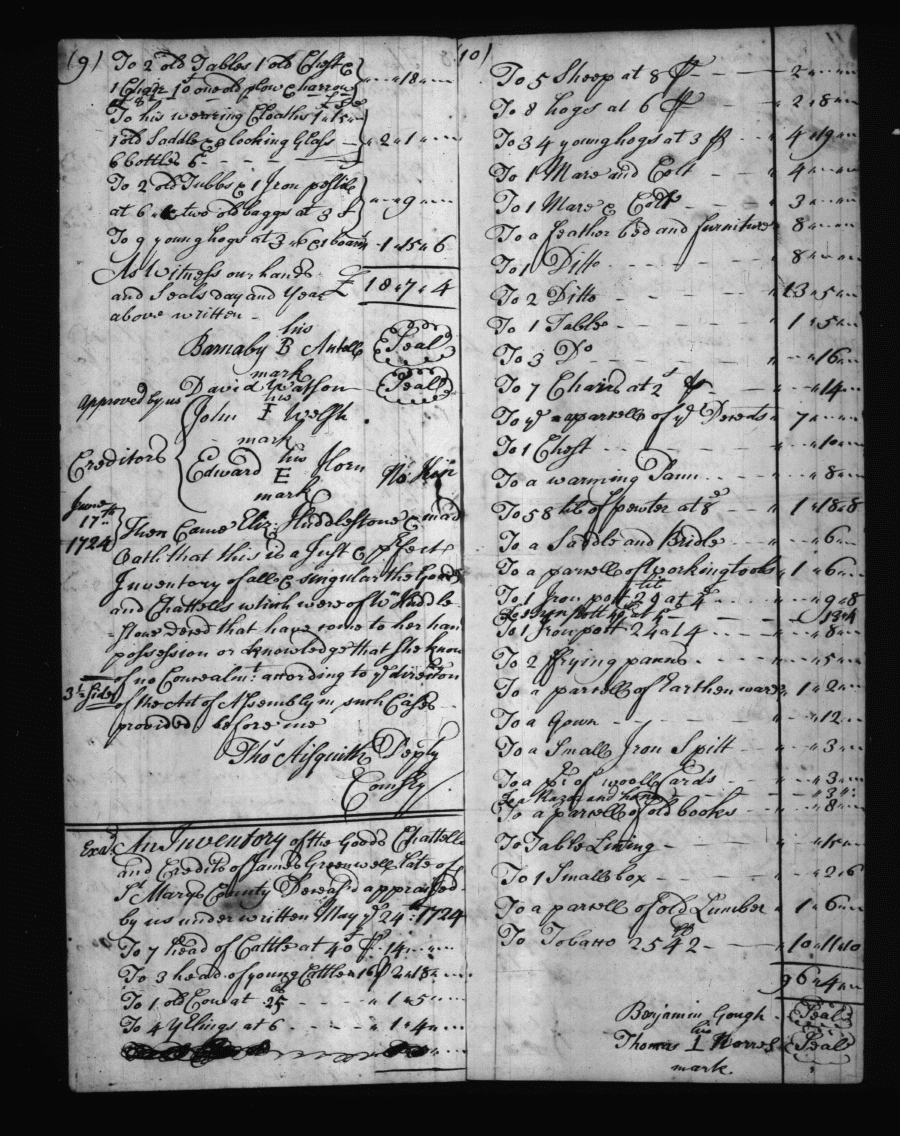 (9) To 2 old Tables 1 old Chest &
1 Chair 10 one old plow & harrow " " 18 " "
To his wearing Cloaths
1 old Saddle & looking Glass " 2 " 1 "
6 bottles 6
To 2 old Tubbs & 1 Iron pestle
at 6 & two old baggs at 3 " " 9 " "
To 9 young hogs at 3 1 " 15 " 6
As Witness our hands
and Seals day and Year £ 18 " 7 " 4
above written
his
Barnaby B Antell Seal
mark
David Watson Seal
Approved by us
his
John I Welsh
mark
Creditors
his
Edward E Horn No Kin
mark
June
17th
1724
Then Came Eliz: Huddlestone & made
Oath that this is a Just & pfect
Inventory of all & singular the Goods
and Chattells which were of Wm Huddle-
-stone deced that have come to her hand
possession or knowledge that she know
of no Concealmt according to ye direction
3½ Sides
of the Act of Assembly in such Cases
provided before me
Tho Aisquith Deply
Comsry
Exad An Inventory of the Goods Chattells
and Credits of James Greenwell late of
St Marys County Deceas'd appraised
by us underwritten May ye 24th: 1724
To 7 head of Cattle at 40 p 14 " " "
To 3 head of young Cattle 16 p 2 " 8 "
To 1 old Cow at 25 " 1 " 5 "
To 4 Yelings at 6 " 1 " 4 "
(10)
To 5 Sheep at 8 p 2 " "
To 8 hogs at 6 p " 2 " 8 "
To 34 young hogs at 3 p 4 " 19 "
To 1 Mare and Colt 4 " "
To 1 Mare & Colt " 3 " "
To a feather bed and furniture 8 " "
To 1 Ditto 8 " "
To 2 Ditto " 13 " 5 "
To 1 Table 1 " 5 "
To 3 Do " " 16 "
To 7 Chairs at 2s p " " 14 "
To ye apparell of ye Deceds " 7 " "
To 1 Chest " " 10 "
To a warming Pann " " 8 "
To 58 lb of pewter at 8d " 1 " 18 " 8
To a Saddle and Bridle " " 6 "
To a parcell of workingtools " 1 " 6 "
To 1 Iron pott 29 at 4d " " 9 " 8
" 13 " 4
To 1 Iron pott 24 at 4 " " 8 "
To 2 frying panns " " 5 "
To a parcell of Earthenware 1 " 2 "
To a Gown " " 12 "
To a Small Iron Spitt " " 3 "
To a pr of wooll Cards " " 3 "
To a Razor and hone " 3 "
To a parcell of old books " " 8 "
To Table Lining
To 1 Small box " " 2 " 6
To a parcell of old Lumber " 1 " 6 "
To Tobacco 2542 " 10 " 11 " 10
96 " 4 "
Benjamin Gough Seal
his
Thomas I Norris Seal
mark.